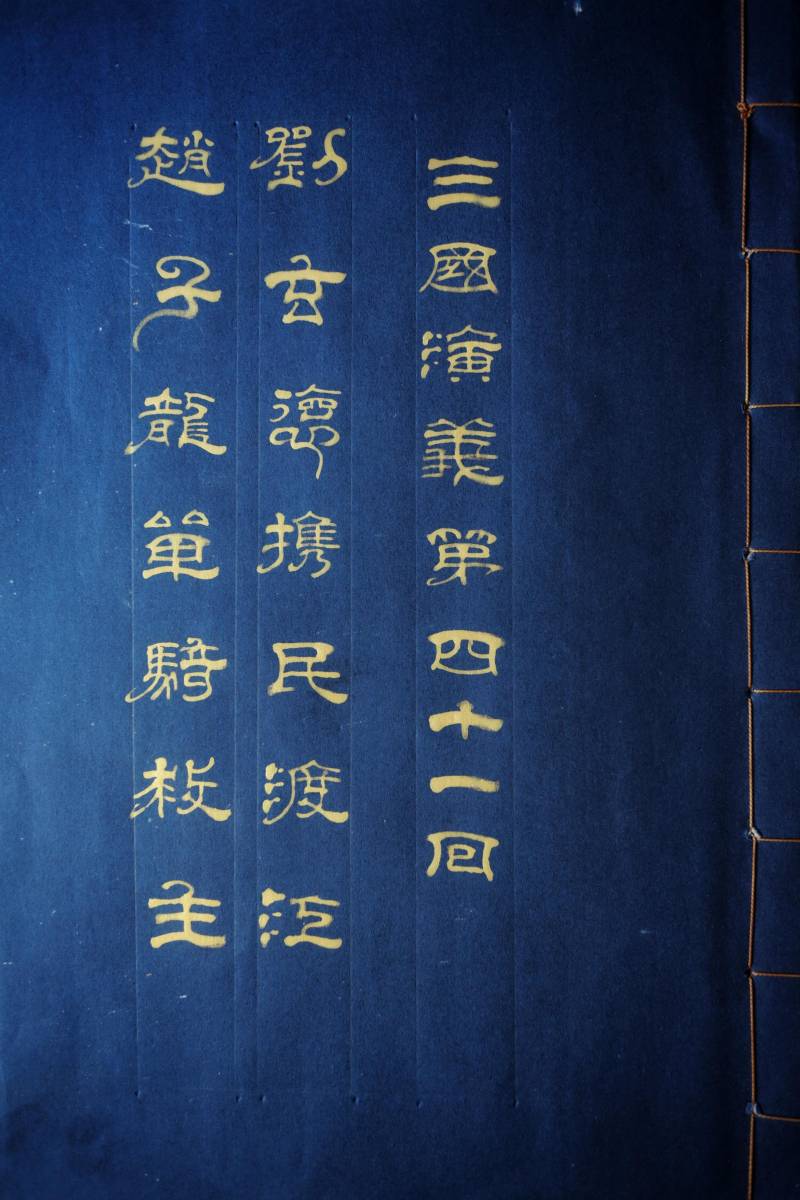 三國演義第四十一回
劉玄德携民渡江
趙子龍單騎救主